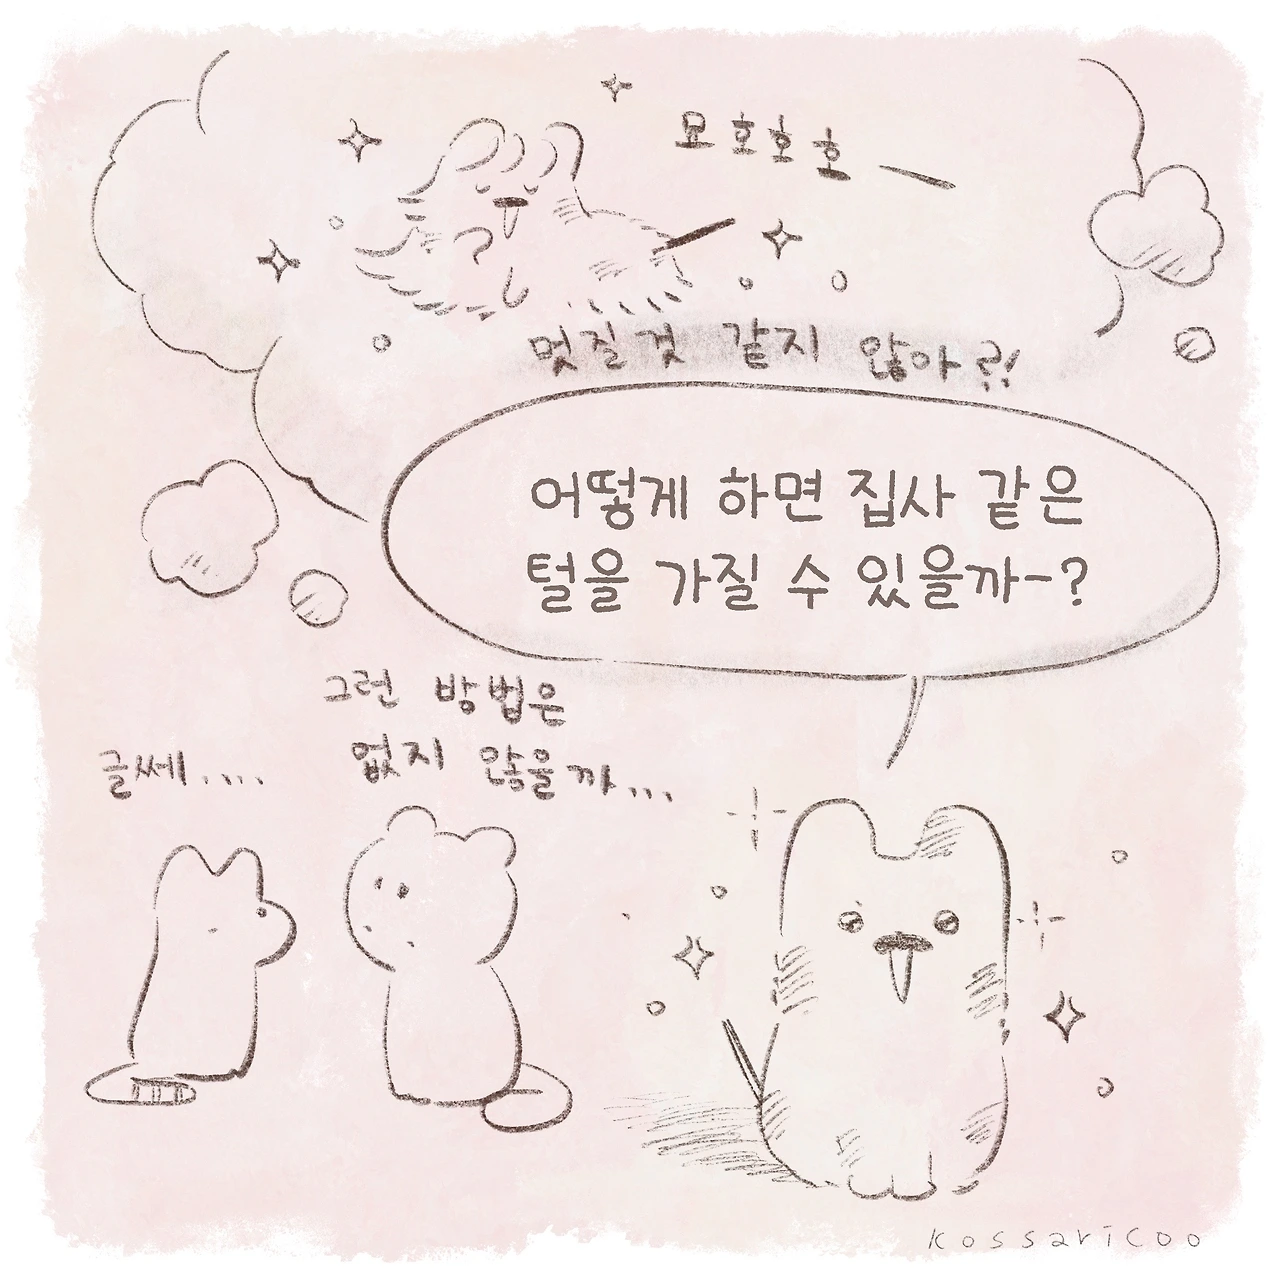 묘호호호
멋질 것 같지 않아?!
어떻게 하면 집사 같은
털을 가질 수 있을까-?
그런 방법은
없지 않을까...
글쎄....
kossaricoo